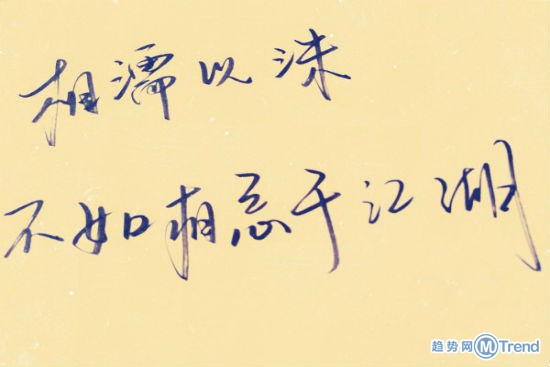 相濡以沫
不如相忘于江湖
趋势网 M Trend